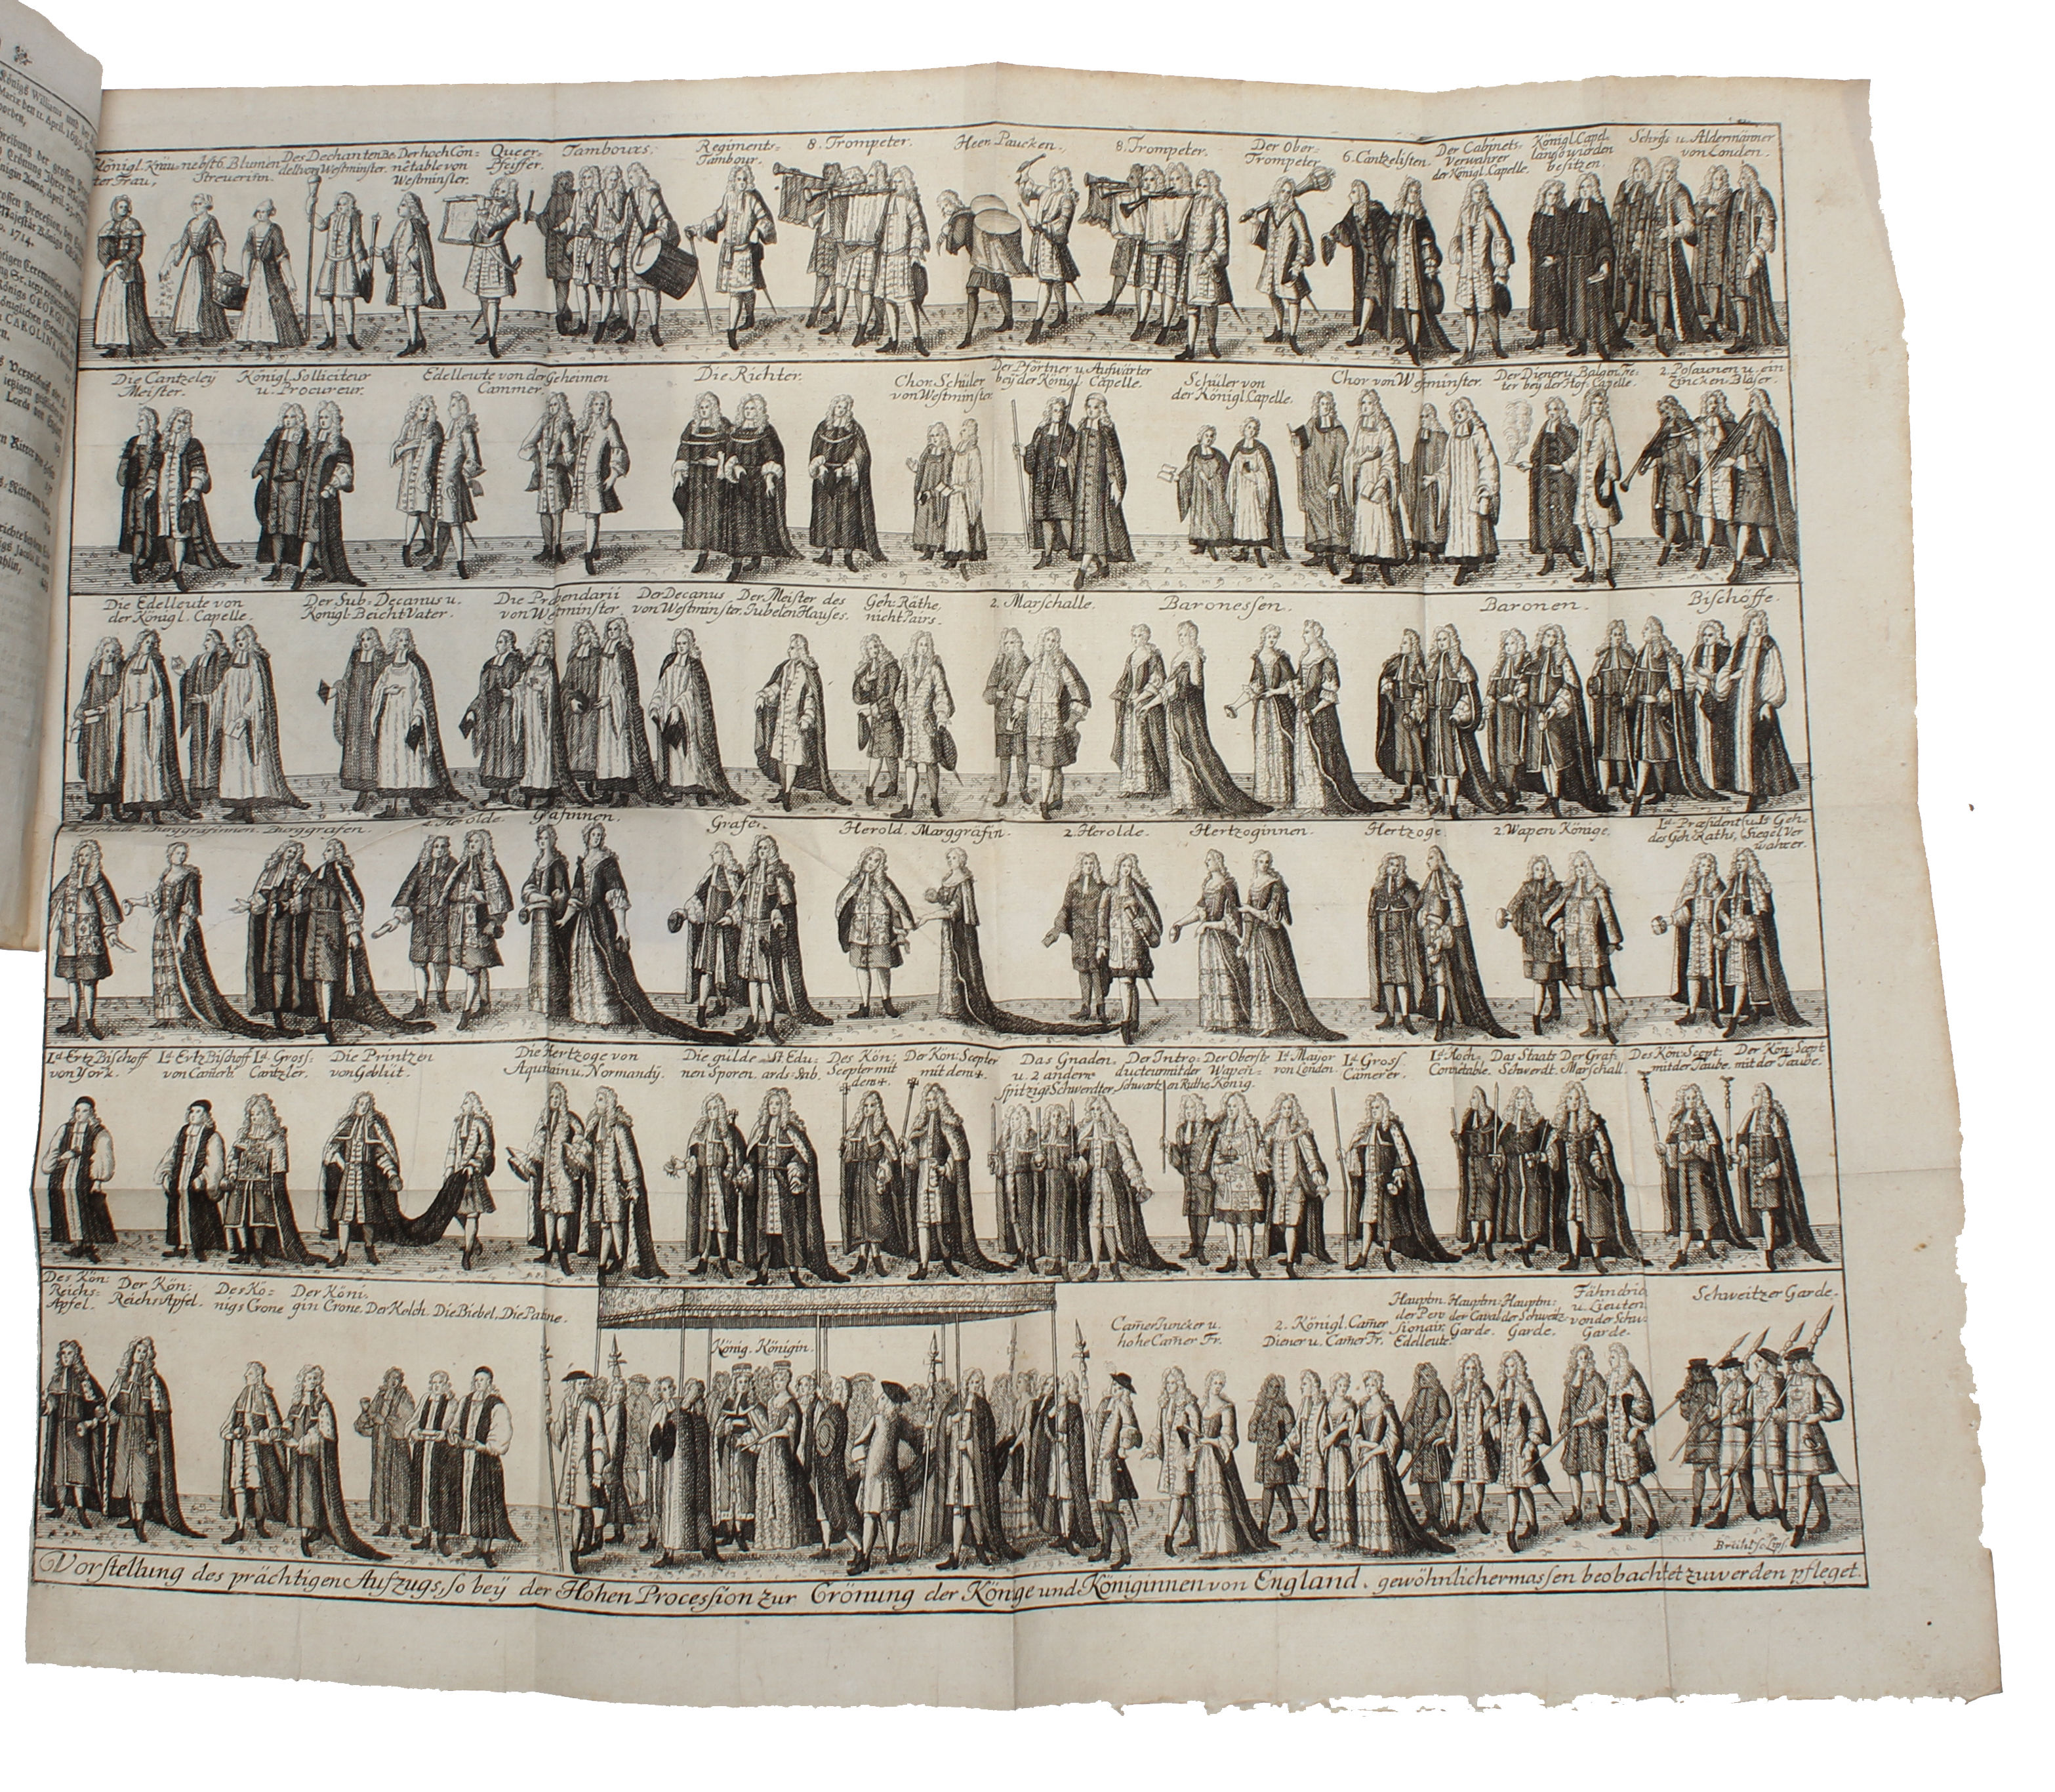 Königs Williams und der
Mariæ den 11. April. 1689.
worden,
1714.
Königs GEORG
CAROLINA
Königl. Kräu-
ter Frau,
nebst 6. Blumen
Streuerifn.
Des Dechanten Be-
dell von Westminster.
Der hoch Con-
nétable von
Westminster.
Queer-
Pfeiffer.
Tambours.
Regiments-
Tambour.
8. Trompeter.
Heer Paucken.
8. Trompeter.
Der Ober-
Trompeter
6. Cantzelisten.
Der Cabinets-
Verwahrer
der Königl. Capelle.
Königl. Capel-
besitzen.
u. Aldermänner
von Londen.
Die Cantzeley
Meister.
Königl. Solliciteur
u. Procureur.
Edelleute von der Geheimen
Cammer.
Die Richter.
Chor-Schüler
von Westminster.
Der Pförtner u. Aufwärter
bey der Königl. Capelle.
Schüler von
der Königl. Capelle.
Chor von Westminster.
Der Diener u. Balgen Tre-
ter bey der Hof. Capelle.
2. Posaunen u. ein
Zincken-Bläser.
Die Edelleute von
der Königl. Capelle.
Der Sub-Decanus u.
Königl. Beicht Vater.
Die Præbendarii
von Westminster.
Der Decanus
von Westminster.
Der Meister des
Jubelen Hauses.
Geh: Räthe,
nicht Pairs.
2. Marschalle.
Baronessen.
Baronen.
Bischöffe.
Burggräfinnen. Burggrafen.
2. Herolde.
Gräfinnen.
Grafen.
Herold. Marggräfin.
2. Herolde.
Hertzoginnen.
Hertzoge.
2. Wapen Könige.
Ld. Præsident
des Geh: Raths,
u. Ld. Geh:
Siegel Ver
wahrer.
Ld. Ertz Bischoff
von York.
Ld. Ertz Bischoff
von Canterb.
Ld. Gross-
Cantzler.
Die Printzen
von Geblüt.
Die Hertzoge von
Aquitain u. Normandy.
Die gülde-
nen Sporen.
St. Edu-
ards-Stab.
Des Kön:
Scepter mit
dem †.
Der Kön: Scepter
mit dem †.
Das Gnaden-
u. 2 andere
spitzige Schwerdter,
Der Intro-
ducteur mit der
schwartzen Ruthe,
Der Oberste
Wapen-
König.
Ld. Mayor
von Londen.
Ld. Gross
Cämerer.
Ld. Hoch-
Connétable.
Das Staats
Schwerdt.
Der Graf-
Marschall.
Des Kön: Scept:
mit der Taube.
Der Kön: Scept
mit der Taube.
Des Kön:
Reichs-
Apfel.
Der Kön:
Reichs Apfel.
Des Kö-
nigs Crone
Der Köni-
gin Crone.
Der Kelch. Die Biebel. Die Patine.
König. Königin.
Camer Juncker u.
hohe Camer Fr.
2. Königl. Camer
Diener u. Camer Fr.
Hauptm.
der Pen-
sionair
Edelleute.
Hauptm:
der Caval
Garde.
Hauptm:
der Schweitz
Garde.
Fähndric
u. Lieuten
von der Schw.
Garde.
Schweitzer Garde.
Brühl sc. Lips.
Vorstellung des prächtigen Aufzugs, so bey der Hohen Procession zur Crönung der Könge und Königinnen von England, gewöhnlichermassen beobachtet zu werden pfleget.